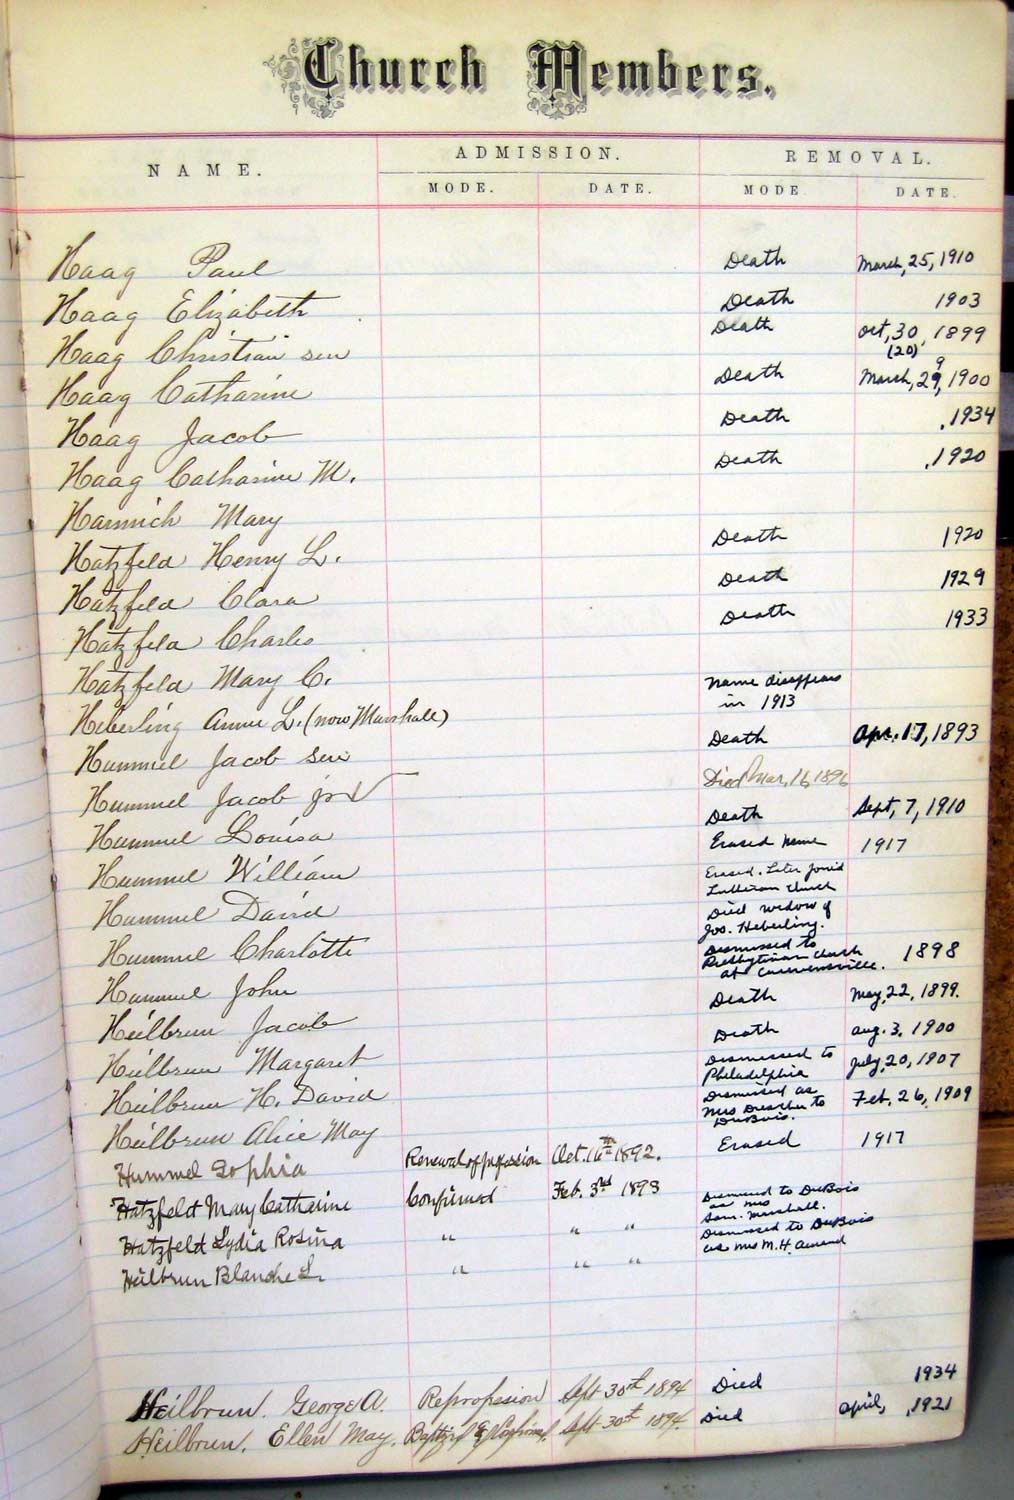 Church Members.
NAME. ADMISSION. REMOVAL.
MODE. DATE. MODE DATE.
Haag Paul Death March, 25, 1910
Haag Elizabeth Death 1903
Haag Christian sen Death Oct, 30, 1899
(20)
9
Haag Catharine Death March, 29, 1900
Haag Jacob Death .1934
Haag Catharine M. Death .1920
Harmich Mary
Hatzfeld Henry L. Death 1920
Hatzfeld Clara Death 1929
Hatzfeld Charles Death 1933
Hatzfeld Mary C.
Name disappears
in 1913
Heberling Annie L. (now Marshall)
Hummel Jacob sen Death Apr. 17, 1893
Hummel Jacob jr Died Mar, 16, 1896
Hummel Louisa Death Sept, 7, 1910
Hummel William Erased Name 1917
Hummel David Erased. Later joined
Lutheran church
Hummel Charlotte Died widow of
Jos. Heberling.
Hummel John Dismissed to
Presbyterian church
at Curwensville. 1898
Heilbrun Jacob Death May, 22, 1899.
Heilbrun Margaret Death Aug. 3, 1900
Heilbrun H. David Dismissed to
Philadelphia July, 20, 1907
Heilbrun Alice May Dismissed as
Mrs to
DuBois. Feb. 26, 1909
Hummel Sophia Renewal of profession Oct. 16th 1892. Erased 1917
Hatzfeld Mary Catharine Confirmed Feb. 3rd 1893
Hatzfeld Lydia Rosina " " " Dismissed to DuBois
as Mrs
Sam. Marshall.
Heilbrun Blanche L. " " " Dismissed to DuBois
as Mrs M. H.
Heilbrun. George A. Reprofession Sept 30th 1894 Died 1934
Heilbrun. Ellen May. Baptized & Confirmed. Sept 30th 1894. Died April, .1921